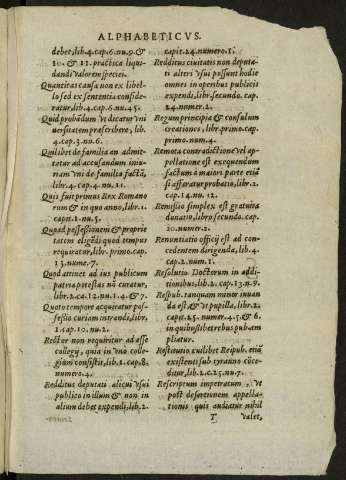 ALPHABETICVS.
debet, lib.4.cap.6.nu.9.&
10. & 11. practica liqui-
dandi valorem speciei.
Quantitas causa non ex libel-
lo sed ex sententia conside-
ratur, lib.4.cap.6.nu.45.
Quid probandum vt dicatur vni
uersitatem præscribere, lib.
4.cap.3.nu.6.
Quilibet de familia an admit-
tetur ad accusandum iniu-
riam vni de familia factã,
lib.4.cap.4.nu.11.
Quis fuit primus Rex Romano
rum & in quo anno, lib.1.
capit.1.nu.3.
Quoad possessionem & proprie
tatem eligẽdi quod tempus
requiratur, lib. primo.cap.
13.nume.7.
Quod attinet ad ius publicum
patria potestas nõ curatur,
libr.2.ca.12.nu.1.4.& 7.
Quoto tempore acquiratur pos-
sessio curiam intrandi, libr.
1.cap.10.nu.2.
Rector non requiritur ad esse
collegij, quia in vno colle-
gium consistit, lib.1.cap.8.
numero.4.
Redditus deputati alicui vsui
publico in illum & non in
alium debet expendi, lib.2.
capit.24.numero.1.
Redditus ciuitatis non deputa-
ti alteri vsui possunt hodie
omnes in operibus publicis
expendi, libr. secundo. cap.
24.numer.2.
Regum principia & consulum
creationes, libr. primo. cap.
primo.num.4.
Remota contradictione vel ap-
pellatione est exequendum
factum à maiori parte etiã
si asseratur probatio, lib.2.
cap.14.nu.12.
Remissio simplex est gratuita
donatio, libro secundo. cap.
20.numer.2.
Renuntiatio officij est ad con-
cedentem dirigenda, lib.4.
cap.2.num.1.
Resolutio Doctorum in addi-
tionibus, lib.2.cap.13.n.9.
Respub. tanquam minor iuuan
da est, & vt pupilla, libr.2.
capit.25.numer.4.5.& 6.
in quibuslibet rebus put am
pliatur.
Restitutio cuilibet Reipub. etiã
existenti sub tyranno cõce-
ditur, lib.2.c.25.nu.7.
Rescriptum impetratum, vt
post desertionem appella-
tionis quis audiatur nihil
T valet,